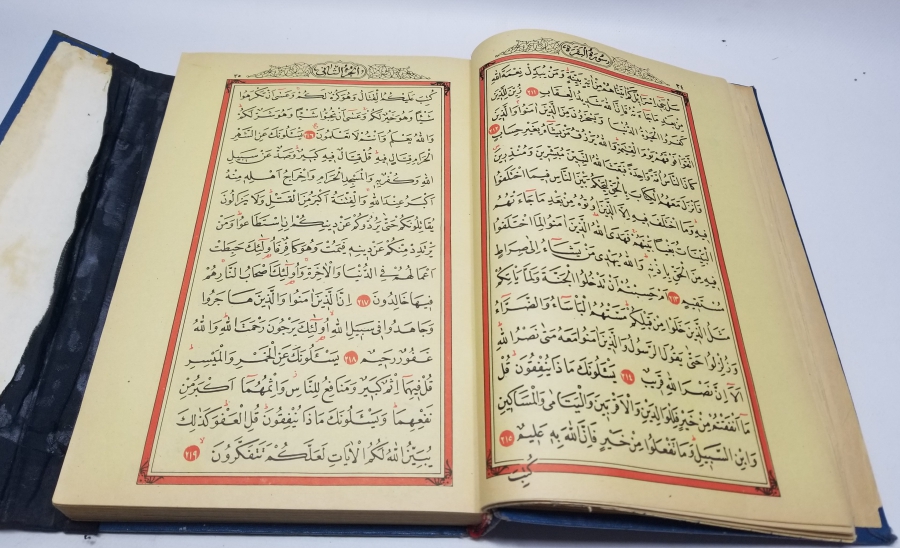 سُورَةُ الْبَقَرَةِ
سَلْ بَنِي اِسْرَائِلَ كَمْ اٰتَيْنَاهُمْ مِنْ اٰيَةٍ بَيِّنَةٍ وَمَنْ يُبَدِّلْ نِعْمَةَ اللهِ
مِنْ بَعْدِ مَا جَاءَتْهُ فَاِنَّ اللهَ شَدِيدُ الْعِقَابِ ٢١١ زُيِّنَ لِلَّذِينَ
كَفَرُوا الْحَيٰوةُ الدُّنْيَا وَيَسْخَرُونَ مِنَ الَّذِينَ اٰمَنُوا وَالَّذِينَ
اتَّقَوْا فَوْقَهُمْ يَوْمَ الْقِيٰمَةِ وَاللهُ يَرْزُقُ مَنْ يَشَاءُ بِغَيْرِ حِسَابٍ ٢١٢
كَانَ النَّاسُ اُمَّةً وَاحِدَةً فَبَعَثَ اللهُ النَّبِيِّنَ مُبَشِّرِينَ وَمُنْذِرِينَ
وَاَنْزَلَ مَعَهُمُ الْكِتَابَ بِالْحَقِّ لِيَحْكُمَ بَيْنَ النَّاسِ فِيمَا اخْتَلَفُوا
فِيهِ وَمَا اخْتَلَفَ فِيهِ اِلَّا الَّذِينَ اُوتُوهُ مِنْ بَعْدِ مَا جَاءَتْهُمُ
الْبَيِّنَاتُ بَغْيًا بَيْنَهُمْ فَهَدَى اللهُ الَّذِينَ اٰمَنُوا لِمَا اخْتَلَفُوا
فِيهِ مِنَ الْحَقِّ بِاِذْنِهِ وَاللهُ يَهْدِي مَنْ يَشَاءُ اِلٰى صِرَاطٍ
مُسْتَقِيمٍ ٢١٣ اَمْ حَسِبْتُمْ اَنْ تَدْخُلُوا الْجَنَّةَ وَلَمَّا يَأْتِكُمْ
مَثَلُ الَّذِينَ خَلَوْا مِنْ قَبْلِكُمْ مَسَّتْهُمُ الْبَأْسَاءُ وَالضَّرَّاءُ
وَزُلْزِلُوا حَتّٰى يَقُولَ الرَّسُولُ وَالَّذِينَ اٰمَنُوا مَعَهُ مَتٰى نَصْرُ اللهِ
اَلَا اِنَّ نَصْرَ اللهِ قَرِيبٌ ٢١٤ يَسْئَلُونَكَ مَاذَا يُنْفِقُونَ قُلْ
مَا اَنْفَقْتُمْ مِنْ خَيْرٍ فَلِلْوَالِدَيْنِ وَالْاَقْرَبِينَ وَالْيَتَامٰى وَالْمَسَاكِينِ
وَابْنِ السَّبِيلِ وَمَا تَفْعَلُوا مِنْ خَيْرٍ فَاِنَّ اللهَ بِهِ عَلِيمٌ ٢١٥
كُتِبَ
اَلْجُزْءُ الثَّانِي
كُتِبَ عَلَيْكُمُ الْقِتَالُ وَهُوَ كُرْهٌ لَكُمْ وَعَسٰى اَنْ تَكْرَهُوا
شَيْئًا وَهُوَ خَيْرٌ لَكُمْ وَعَسٰى اَنْ تُحِبُّوا شَيْئًا وَهُوَ شَرٌّ لَكُمْ
وَاللهُ يَعْلَمُ وَاَنْتُمْ لَا تَعْلَمُونَ ٢١٦ يَسْئَلُونَكَ عَنِ الشَّهْرِ
الْحَرَامِ قِتَالٍ فِيهِ قُلْ قِتَالٌ فِيهِ كَبِيرٌ وَصَدٌّ عَنْ سَبِيلِ
اللهِ وَكُفْرٌ بِهِ وَالْمَسْجِدِ الْحَرَامِ وَاِخْرَاجُ اَهْلِهِ مِنْهُ
اَكْبَرُ عِنْدَ اللهِ وَالْفِتْنَةُ اَكْبَرُ مِنَ الْقَتْلِ وَلَا يَزَالُونَ
يُقَاتِلُونَكُمْ حَتّٰى يَرُدُّوكُمْ عَنْ دِينِكُمْ اِنِ اسْتَطَاعُوا وَمَنْ
يَرْتَدِدْ مِنْكُمْ عَنْ دِينِهِ فَيَمُتْ وَهُوَ كَافِرٌ فَاُولٰئِكَ حَبِطَتْ
اَعْمَالُهُمْ فِي الدُّنْيَا وَالْاٰخِرَةِ وَاُولٰئِكَ اَصْحَابُ النَّارِ هُمْ
فِيهَا خَالِدُونَ ٢١٧ اِنَّ الَّذِينَ اٰمَنُوا وَالَّذِينَ هَاجَرُوا
وَجَاهَدُوا فِي سَبِيلِ اللهِ اُولٰئِكَ يَرْجُونَ رَحْمَتَ اللهِ وَاللهُ
غَفُورٌ رَحِيمٌ ٢١٨ يَسْئَلُونَكَ عَنِ الْخَمْرِ وَالْمَيْسِرِ
قُلْ فِيهِمَا اِثْمٌ كَبِيرٌ وَمَنَافِعُ لِلنَّاسِ وَاِثْمُهُمَا اَكْبَرُ مِنْ
نَفْعِهِمَا وَيَسْئَلُونَكَ مَاذَا يُنْفِقُونَ قُلِ الْعَفْوَ كَذٰلِكَ
يُبَيِّنُ اللهُ لَكُمُ الْاٰيَاتِ لَعَلَّكُمْ تَتَفَكَّرُونَ ٢١٩